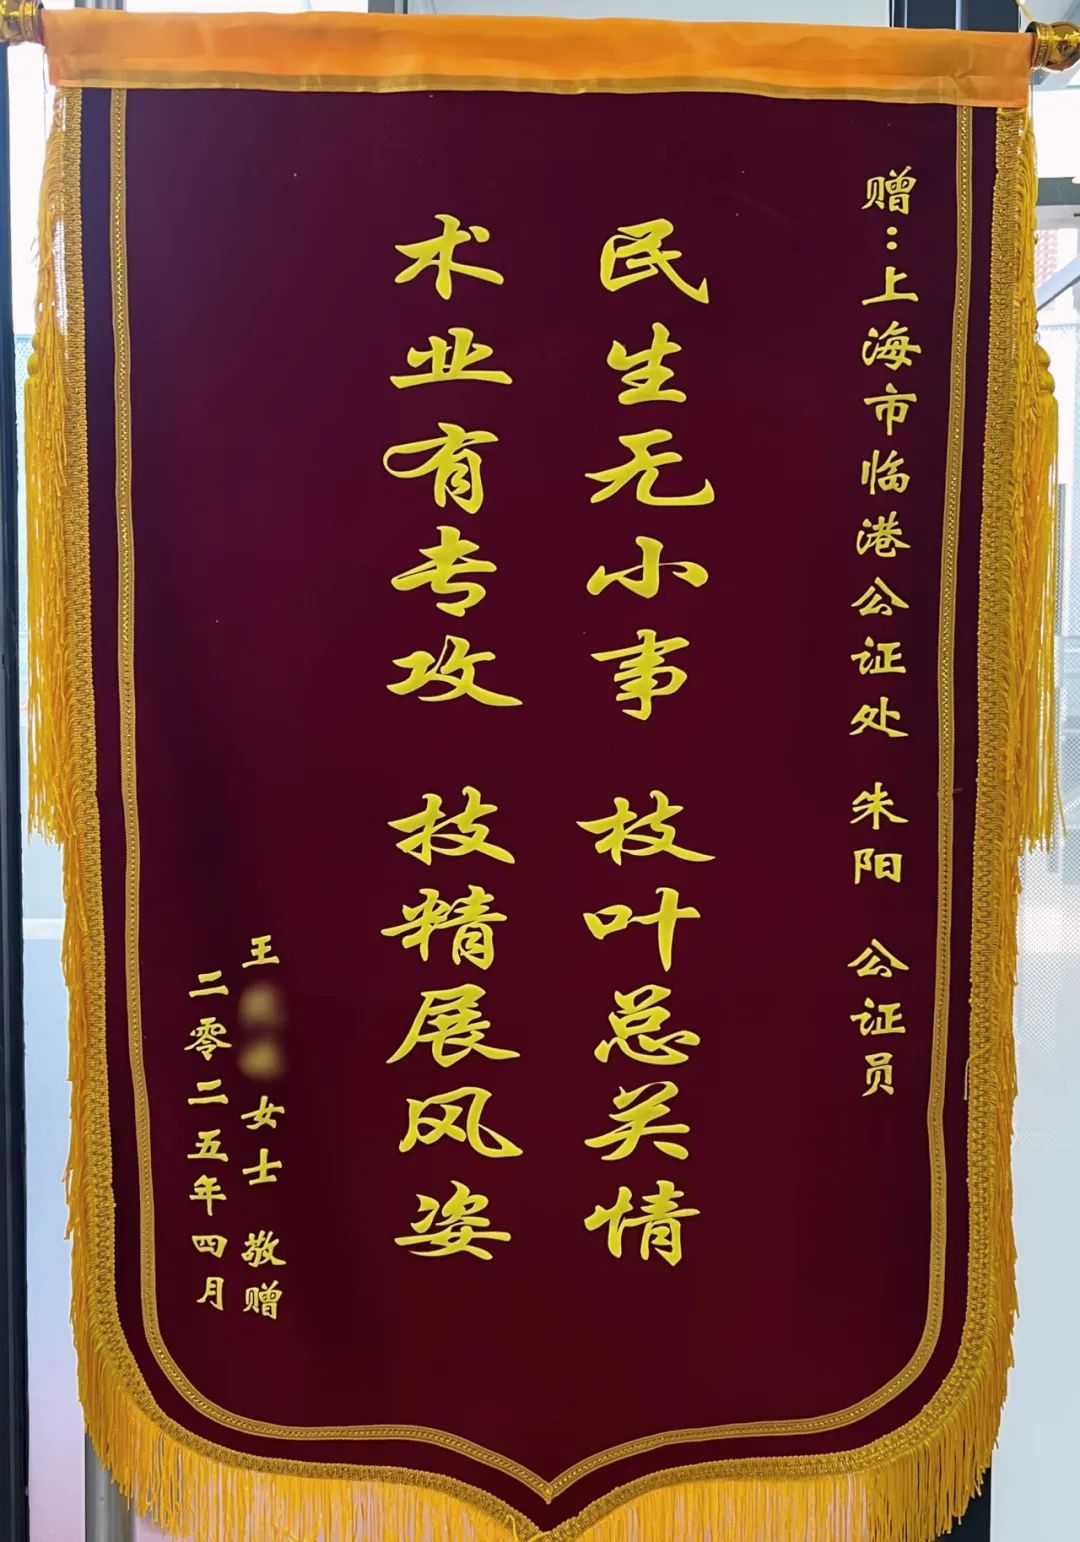 赠：上海市临港公证处 朱阳 公证员
民生无小事 枝叶总关情
术业有专攻 技精展风姿
王 女士 敬赠
二零二五年四月